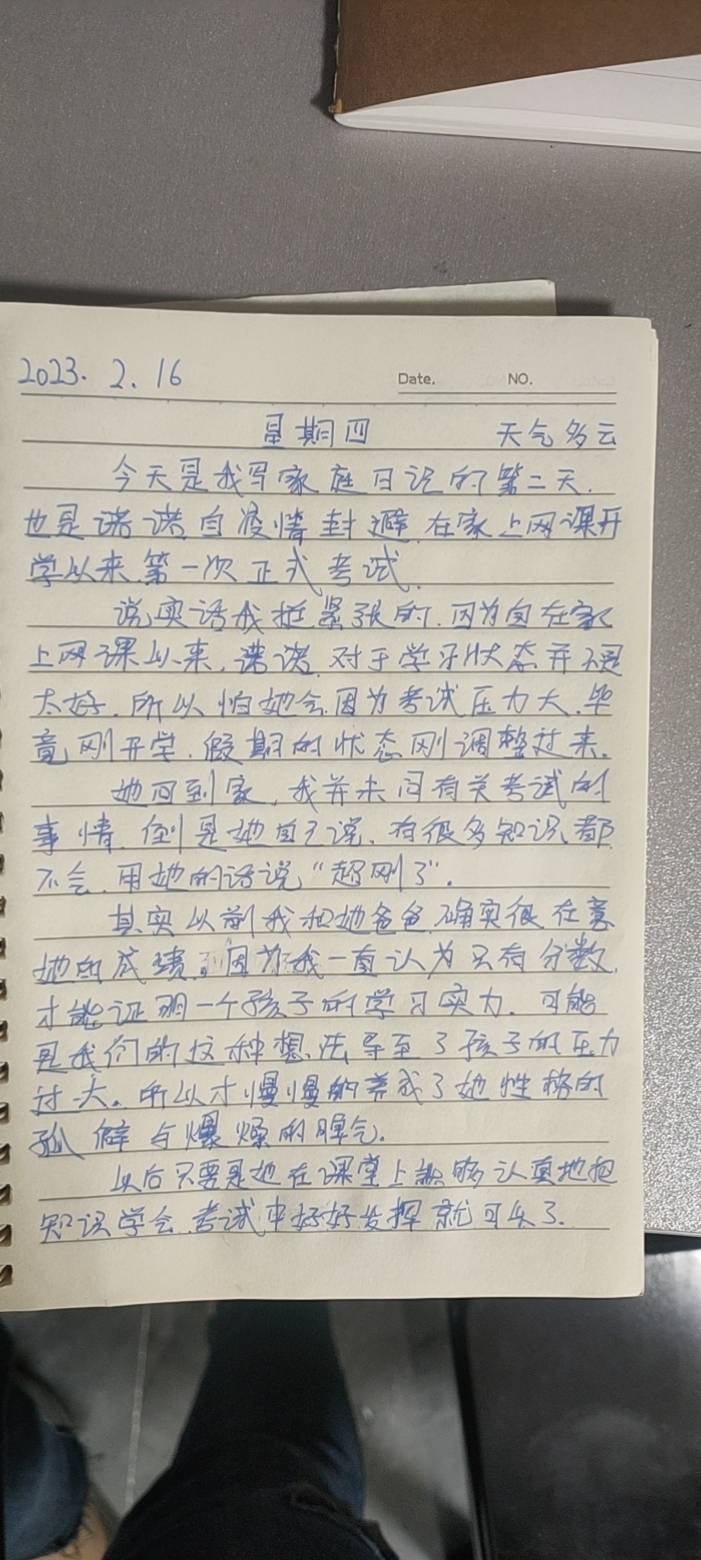 2023. 2. 16
Date. NO.
星期四 天气多云
今天是我写家庭日记的第二天.
也是诺诺自疫情封避在家上网课开
学以来第一次正式考试.
说实话我挺紧张的.因为自在家
上网课以来,诺诺对于学习状态并不是
太好.所以怕她会因为考试压力大.毕
竟刚开学.假期的状态刚调整过来.
她回到家,我并未问有关考试的
事情.倒是她自己说.有很多知识都
不会.用她的话说“超刚了”.
其实以前我和她爸爸确实很在意
她的成绩.因为我一直认为只有分数
才能证明一个孩子的学习实力.可能
是我们的这种想法导至了孩子的压力
过大。所以才慢慢的养成了她性格的
孤僻与爆燥的脾气.
以后只要是她在课堂上能够认真地把
知识学会.考试中好好发挥就可以了.